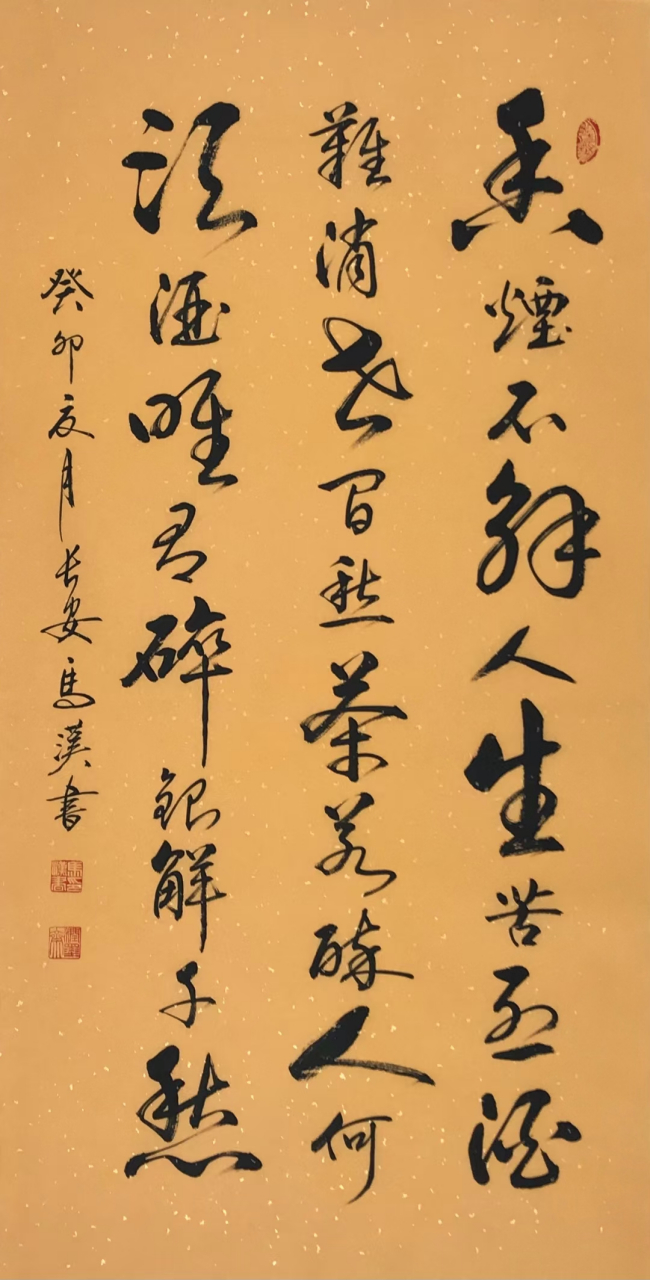 香煙不解人生苦烈酒
難消世间愁茶若醉人何
須酒唯有碎銀解千愁
癸卯夏月长安馬漢書